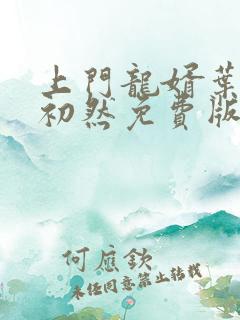 上門龍婿葉
初然免費版
何應欽
未经同意禁止转载